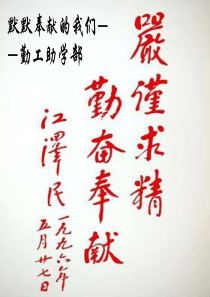 默默奉献的我们—
—勤工助学部
嚴谨求精
勤奋奉献
江澤民
一九九六年
五月廿七日